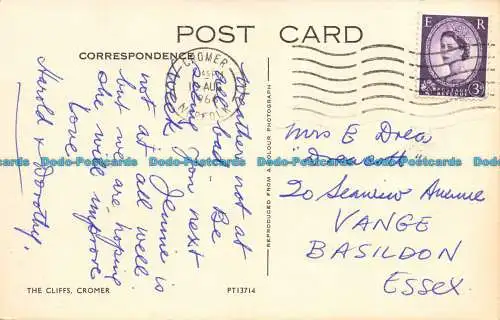 POST CARD
CORRESPONDENCE
CROMER
AU
NORFOLK
E R
3D
Weather not at
all bad. Be
seeing you next
week. Jennie is
not at all well
but we are hoping
she will improve
Love
Harold & Dorothy.
REPRODUCED FROM A COLOUR PHOTOGRAPH
Mrs E Drea
20 Seaview Avenue
VANGE
BASILDON
Essex.
THE CLIFFS, CROMER
PT13714
Dodo-Postcards Dodo-Postcards Dodo-Postcards Dodo-Postcards